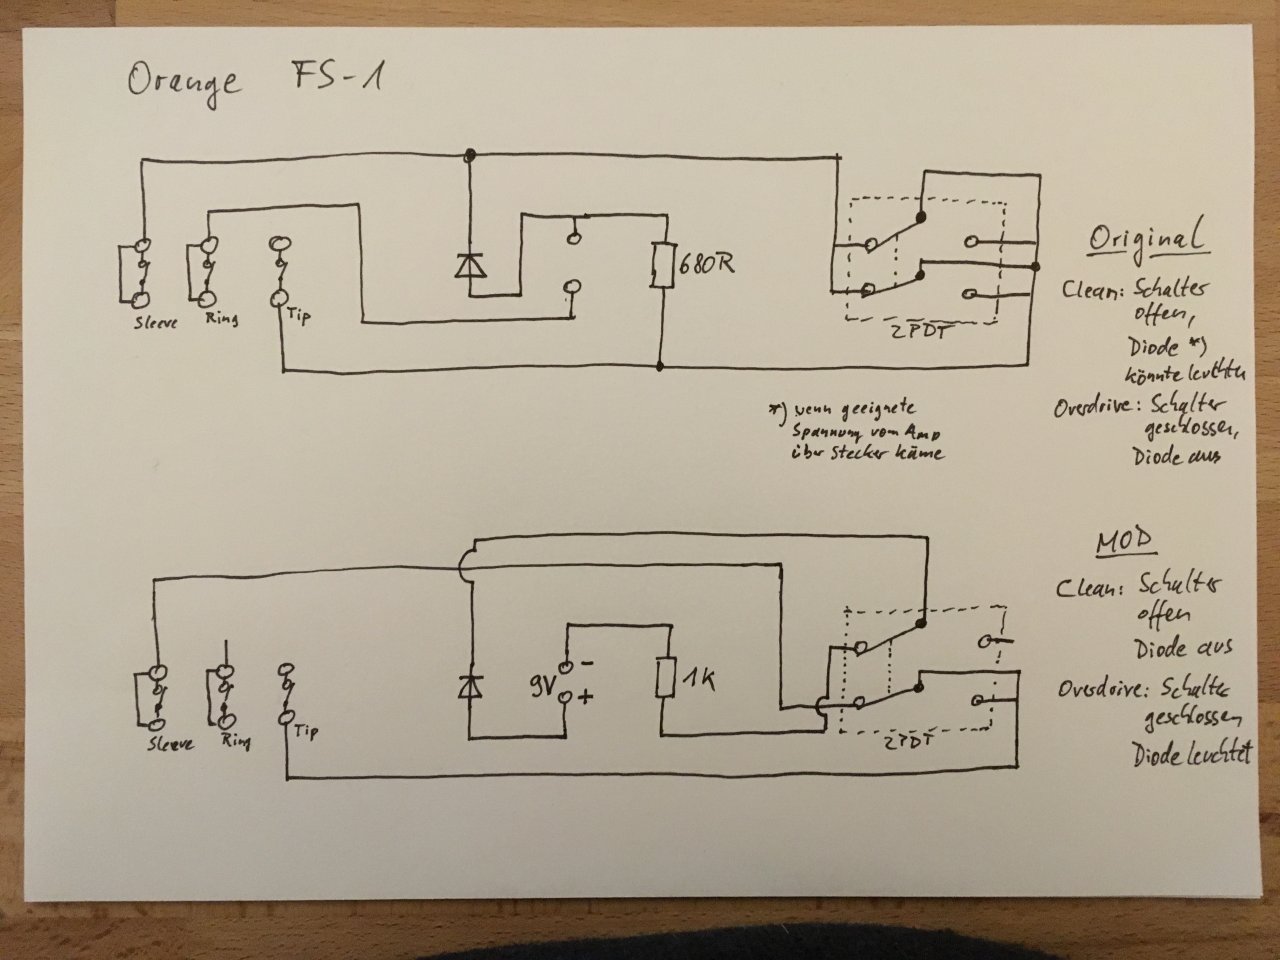 Orange FS-1
Sleeve
Ring
Tip
680R
2PDT
Original
Clean: Schalter
offen,
Diode *)
könnte leuchten
Overdrive: Schalter
geschlossen,
Diode aus
*) wenn geeignete
Spannung vom Amp
über Stecker käme
MOD
Clean: Schalter
offen
Diode aus
Overdrive: Schalter
geschlossen
Diode leuchtet
Sleeve
Ring
Tip
9V - +
1K
2PDT